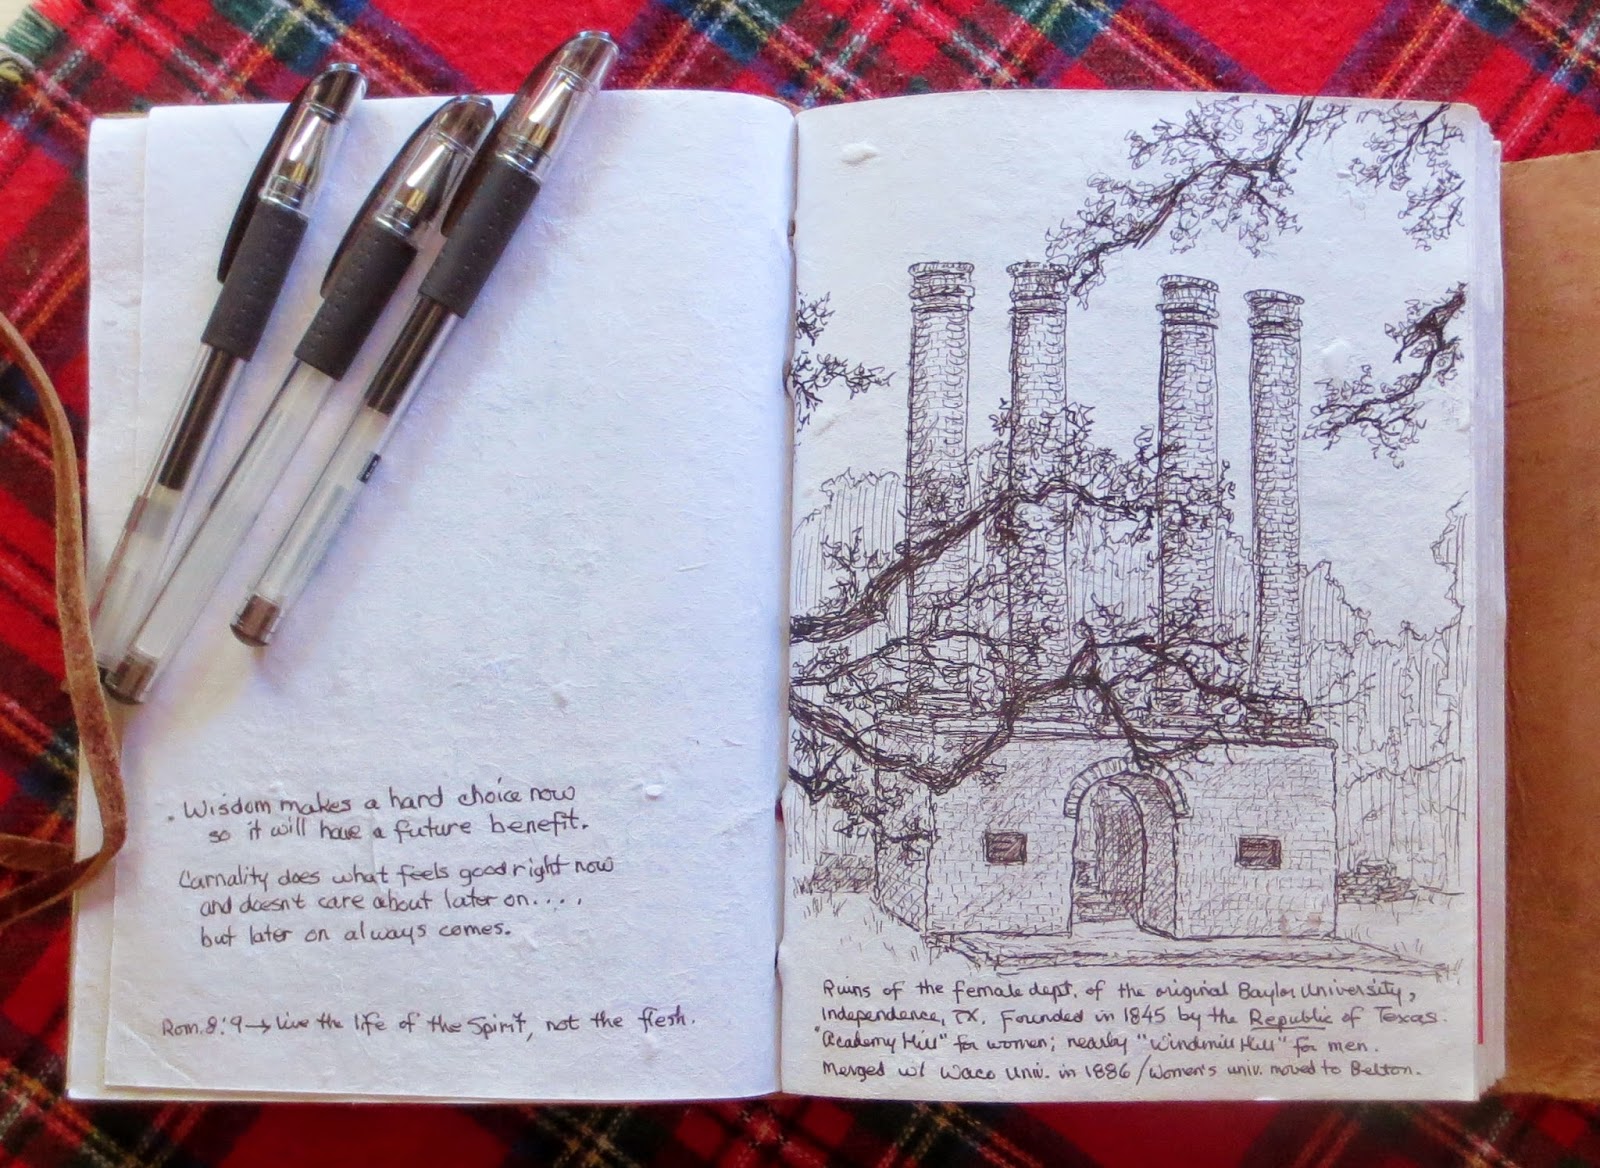 . Wisdom makes a hard choice now
so it will have a future benefit.
Carnality does what feels good right now
and doesn't care about later on....
but later on always comes.
Rom. 8:9 → Live the life of the Spirit, not the flesh.
Ruins of the female dept. of the original Baylor University,
Independence, TX. Founded in 1845 by the Republic of Texas.
"Academy Hill" for women; nearby "Windmill Hill" for men.
Merged w/ Waco Univ. in 1886 / Women's univ. moved to Belton.